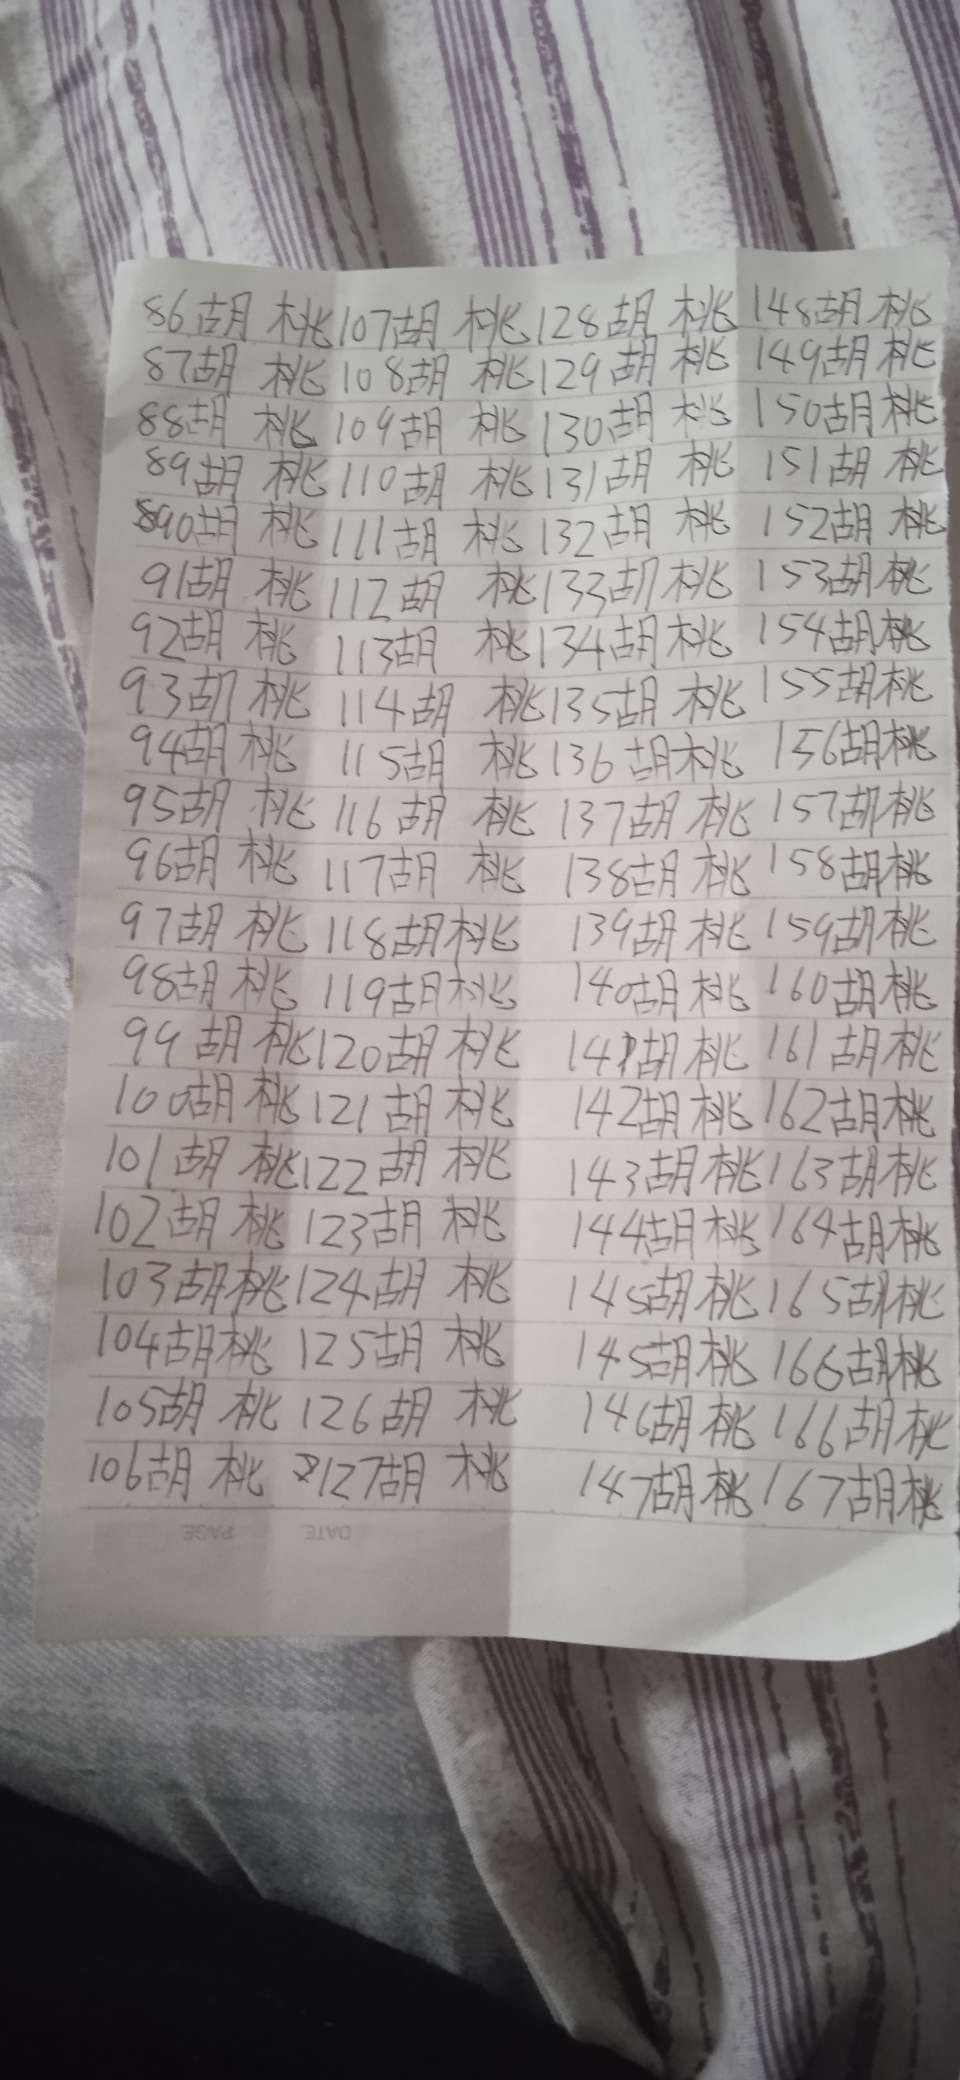 86胡桃 107胡桃 128胡桃 148胡桃
87胡桃 108胡桃 129胡桃 149胡桃
88胡桃 109胡桃 130胡桃 150胡桃
89胡桃 110胡桃 131胡桃 151胡桃
90胡桃 111胡桃 132胡桃 152胡桃
91胡桃 112胡桃 133胡桃 153胡桃
92胡桃 113胡桃 134胡桃 154胡桃
93胡桃 114胡桃 135胡桃 155胡桃
94胡桃 115胡桃 136胡桃 156胡桃
95胡桃 116胡桃 137胡桃 157胡桃
96胡桃 117胡桃 138胡桃 158胡桃
97胡桃 118胡桃 139胡桃 159胡桃
98胡桃 119胡桃 140胡桃 160胡桃
99胡桃 120胡桃 141胡桃 161胡桃
100胡桃 121胡桃 142胡桃 162胡桃
101胡桃 122胡桃 143胡桃 163胡桃
102胡桃 123胡桃 144胡桃 164胡桃
103胡桃 124胡桃 145胡桃 165胡桃
104胡桃 125胡桃 145胡桃 166胡桃
105胡桃 126胡桃 146胡桃 166胡桃
106胡桃 127胡桃 147胡桃 167胡桃
PAGE DATE